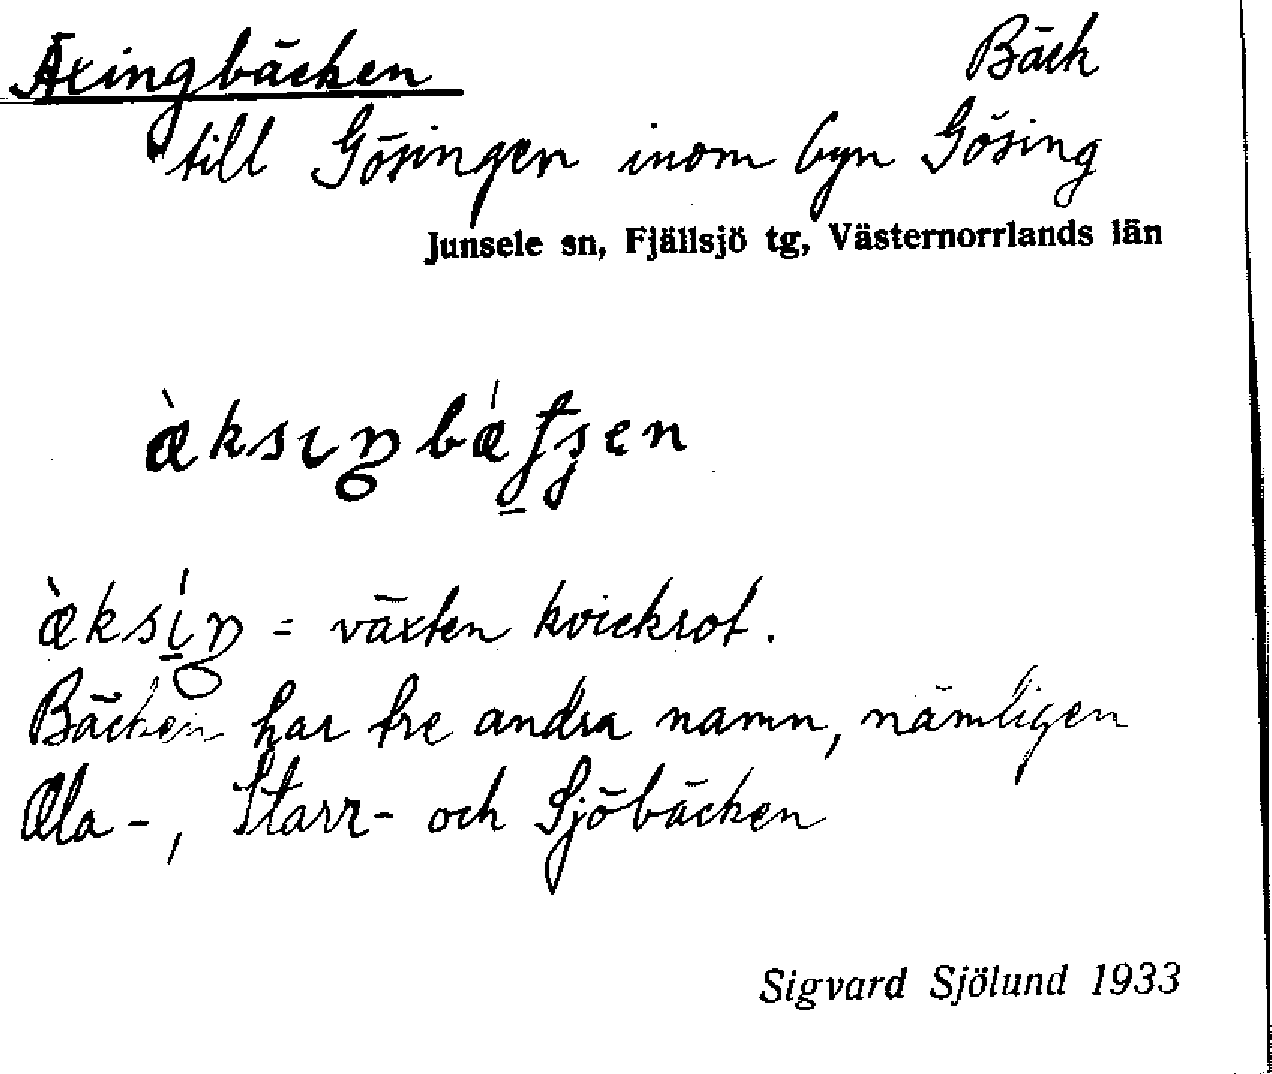 Äxingbäcken Bäck
till Gösingen inom byn Gösing
Junsele sn, Fjällsjö tg, Västernorrlands län
æ̀ksıŋbǽʄʂen
æ̀ksíŋ = växten kvickrot.
Bäcken har tre andra namn, nämligen
Ola-, Starr- och Sjöbäcken
Sigvard Sjölund 1933